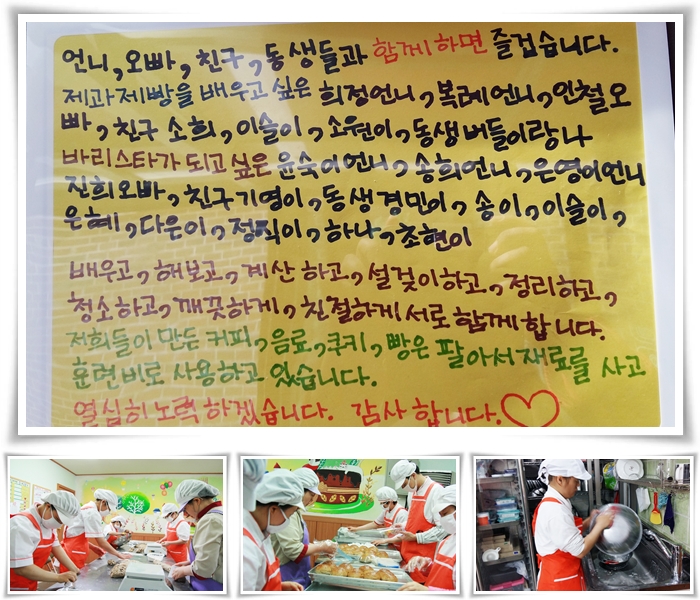 언니, 오빠, 친구, 동생들과 함께 하면 즐겁습니다.
제과제빵을 배우고 싶은 희정언니, 복례언니, 인철오
빠, 친구 소희, 이슬이, 소원이, 동생 버들이랑 나
바리스타가 되고 싶은 윤숙이언니, 송희언니, 은영이언니
진희오빠, 친구 기영이, 동생 경민이, 송이, 이슬이,
은혜, 다운이, 정직이, 하나, 초현이
배우고, 해보고, 계산 하고, 설겆이하고, 정리하고,
청소하고, 깨끗하게, 친절하게 서로 함께 합니다.
저희들이 만든 커피, 음료, 쿠키, 빵은 팔아서 재료를 사고
훈련비로 사용하고 있습니다.
열심히 노력 하겠습니다. 감사 합니다.♡